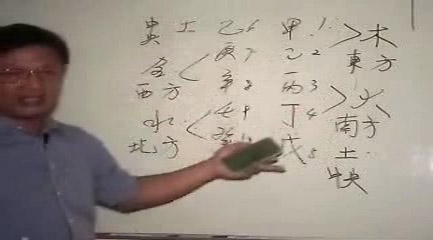 土 己6 甲1 木
金 庚7 乙2 東方
西方 辛8 丙3 火
水 壬9 丁4 南方
北方 癸 戊5 土
中央